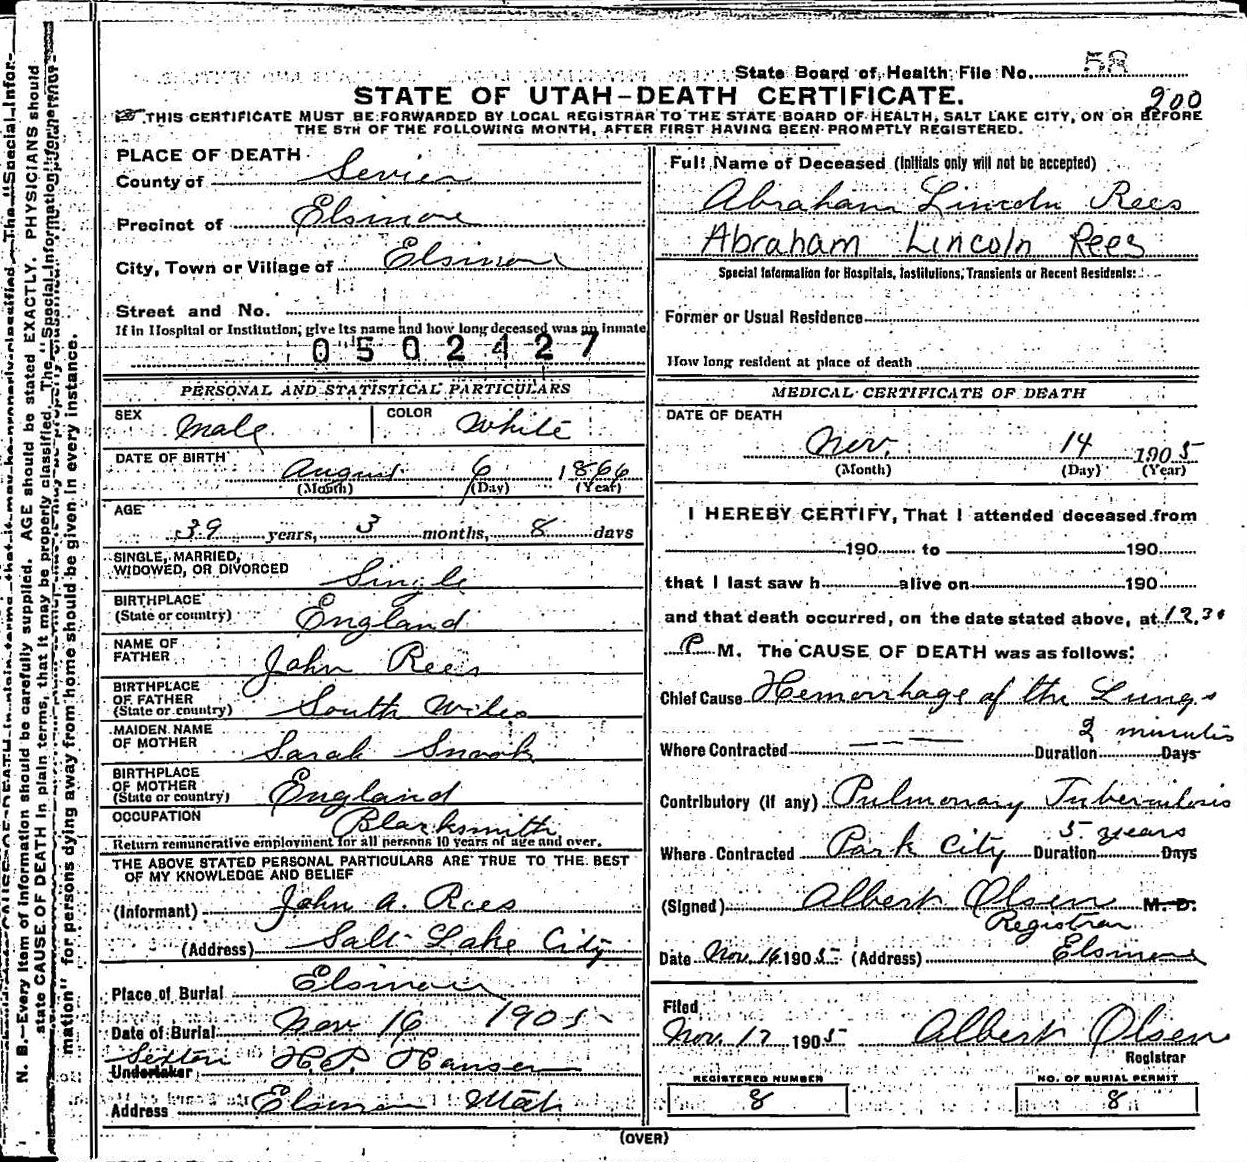 State Board of Health File No. 58
STATE OF UTAH-DEATH CERTIFICATE.
200
THIS CERTIFICATE MUST BE FORWARDED BY LOCAL REGISTRAR TO THE STATE BOARD OF HEALTH, SALT LAKE CITY, ON OR BEFORE
THE 5TH OF THE FOLLOWING MONTH, AFTER FIRST HAVING BEEN PROMPTLY REGISTERED.
PLACE OF DEATH
County of Sevier
Precinct of Elsinore
City, Town or Village of Elsinore
Street and No.
If in Hospital or Institution, give its name and how long deceased was an inmate
0502427
PERSONAL AND STATISTICAL PARTICULARS
SEX Male COLOR White
DATE OF BIRTH August 6 1866
(Month) (Day) (Year)
AGE
39 years, 3 months, 8 days
SINGLE, MARRIED,
WIDOWED, OR DIVORCED Single
BIRTHPLACE
(State or country) England
NAME OF
FATHER John Rees
BIRTHPLACE
OF FATHER
(State or country) South Wiles
MAIDEN NAME
OF MOTHER Sarah Snook
BIRTHPLACE
OF MOTHER
(State or country) England
OCCUPATION Blacksmith
Return remunerative employment for all persons 10 years of age and over.
THE ABOVE STATED PERSONAL PARTICULARS ARE TRUE TO THE BEST
OF MY KNOWLEDGE AND BELIEF
(Informant) John A. Rees
(Address) Salt Lake City
Place of Burial Elsinore
Date of Burial Nov 16 1905
Sexton
Undertaker H.P. Hansen
Address Elsinore Utah
Full Name of Deceased (Initials only will not be accepted)
Abraham Lincoln Rees
Abraham Lincoln Rees
Special Information for Hospitals, Institutions, Transients or Recent Residents:
Former or Usual Residence
How long resident at place of death
MEDICAL CERTIFICATE OF DEATH
DATE OF DEATH
Nov. 14 1905
(Month) (Day) (Year)
I HEREBY CERTIFY, That I attended deceased from
190 to 190
that I last saw h alive on 190
and that death occurred, on the date stated above, at 12.30
P M. The CAUSE OF DEATH was as follows:
Chief Cause Hemorrhage of the Lungs
2 minutes
Where Contracted Duration Days
Contributory (if any) Pulmonary Tuberculosis
5 years
Where Contracted Park City Duration Days
(Signed) Albert Olsen M. D.
Registrar
Date Nov. 16 1905 (Address) Elsinore
Filed
Nov. 17 1905 Albert Olsen
Registrar
REGISTERED NUMBER
8
NO. OF BURIAL PERMIT
8
(OVER)
N. B.—Every item of information should be carefully supplied. AGE should be stated EXACTLY. PHYSICIANS should
state CAUSE OF DEATH in plain terms, that it may be properly classified. The "Special Information"
mation" for persons dying away from home should be given in every instance.